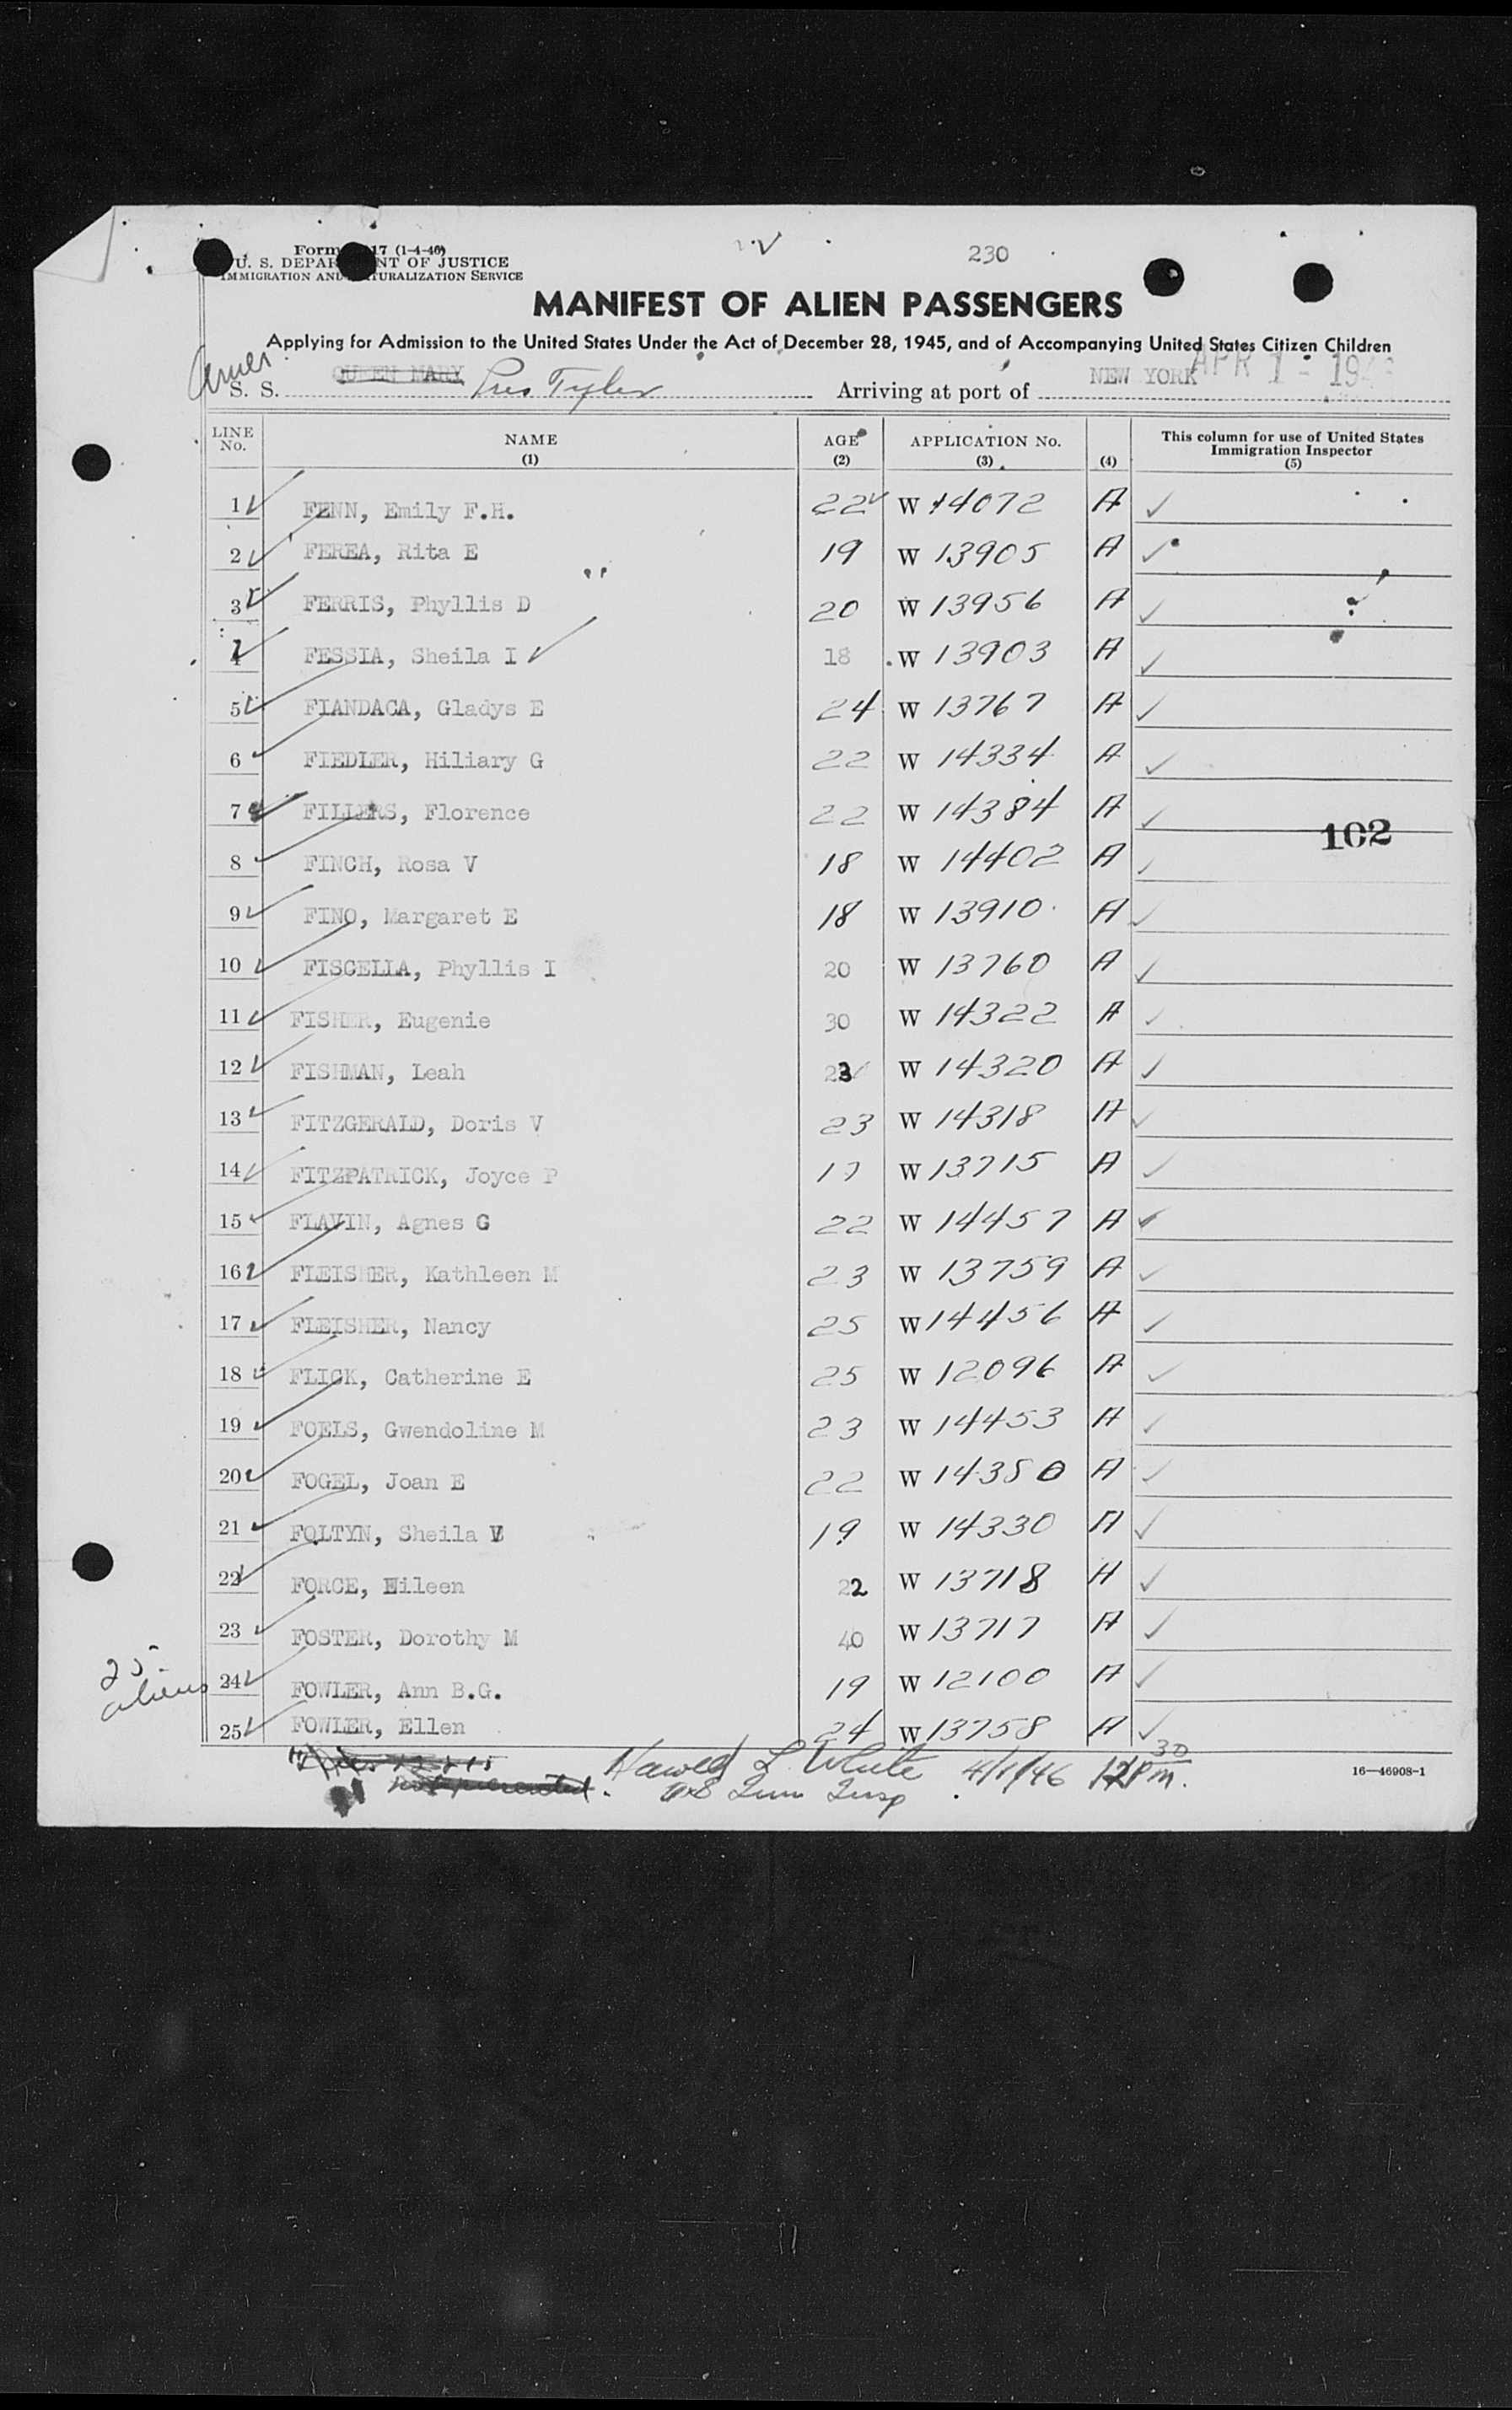 230
Form 17 (1-4-46)
U. S. DEPARTMENT OF JUSTICE
IMMIGRATION AND NATURALIZATION SERVICE
MANIFEST OF ALIEN PASSENGERS
Applying for Admission to the United States Under the Act of December 28, 1945, and of Accompanying United States Citizen Children
Amer
S. S. QUEEN MARY Pres Tyler Arriving at port of NEW YORK APR 1 - 194
LINE No. NAME (1) AGE (2) APPLICATION No. (3) (4) This column for use of United States Immigration Inspector (5)
1 FENN, Emily F.H. 22 W 14072 A
2 FEREA, Rita E 19 W 13905 A
3 FERRIS, Phyllis D 20 W 13956 A
4 FESSIA, Sheila I 18 W 13903 A
5 FIANDACA, Gladys E 24 W 13767 A
6 FIEDLER, Hiliary G 22 W 14334 A
7 FILLERS, Florence 22 W 14384 A
102
8 FINCH, Rosa V 18 W 14402 A
9 FINO, Margaret E 18 W 13910 A
10 FISCELLA, Phyllis I 20 W 13760 A
11 FISHER, Eugenie 30 W 14322 A
12 FISHMAN, Leah 23 W 14320 A
13 FITZGERALD, Doris V 23 W 14318 A
14 FITZPATRICK, Joyce P 17 W 13715 A
15 FLAVIN, Agnes G 22 W 14457 A
16 FLEISHER, Kathleen M 23 W 13759 A
17 FLEISHER, Nancy 25 W 14456 A
18 FLICK, Catherine E 25 W 12096 A
19 FOELS, Gwendoline M 23 W 14453 A
20 FOGEL, Joan E 22 W 14380 A
21 FOLTYN, Sheila V 19 W 14330 A
22 FORCE, Eileen 22 W 13718 A
23 FOSTER, Dorothy M 40 W 13717 A
24 FOWLER, Ann B.G. 19 W 12100 A
25 FOWLER, Ellen 24 W 13758 A
25 aliens
Harold L. White 4/1/46 12 30 P m.
not presented.
US Imm Insp
16—46908-1